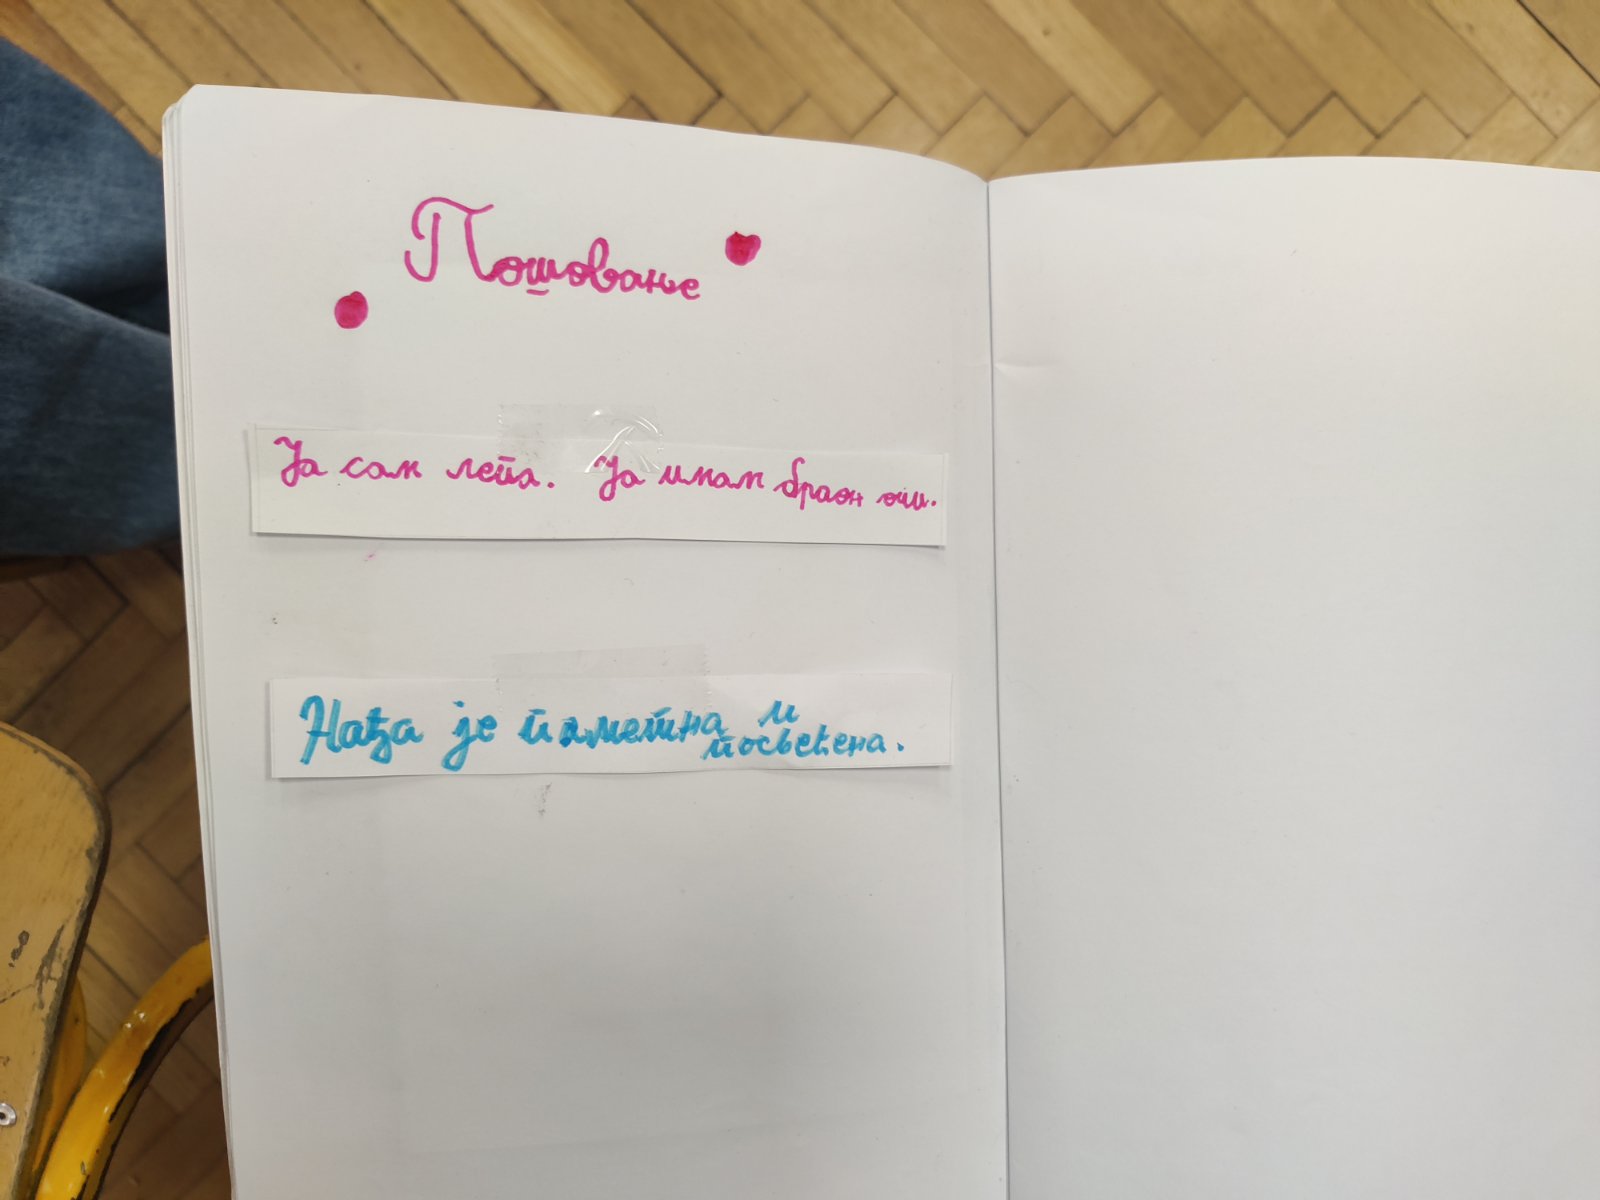 Поштовање
Ја сам лепа. Ја имам браон очи.
Нађа је паметна и
посвећена.